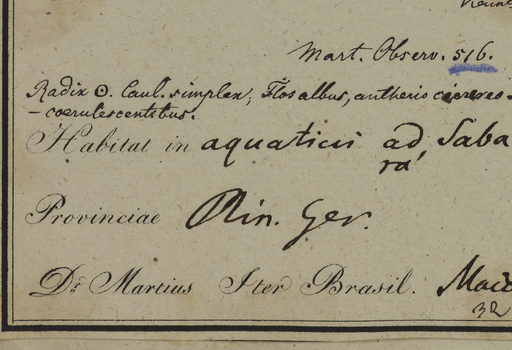 Mart. Observ. 516.
Radix ☉. Caul. simplex; Flos albus, antheris cinereo-
-coerulescentibus.
Habitat in aquaticis ad Saba
rá
Provinciae Min. Ger.
Dr. Martius Iter Brasil.
32